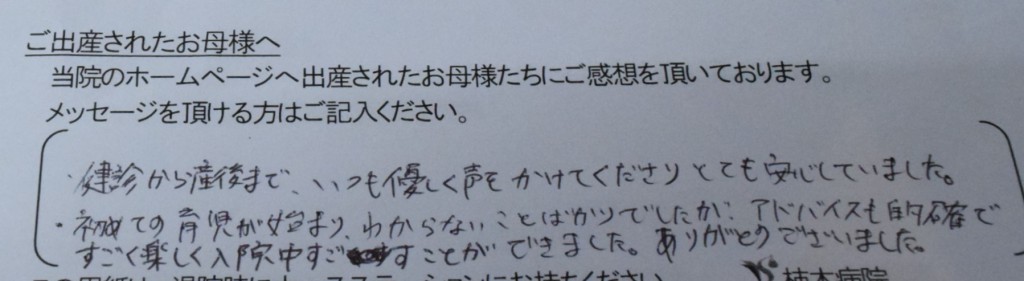 ご出産されたお母様へ
当院のホームページへ出産されたお母様たちにご感想を頂いております。
メッセージを頂ける方はご記入ください。
・健診から産後まで、いつも優しく声をかけてくださりとても安心していました。
・初めての育児が始まり、わからないことばかりでしたが、アドバイスも的確で
すごく楽しく入院中すごすことができました。ありがとうございました。